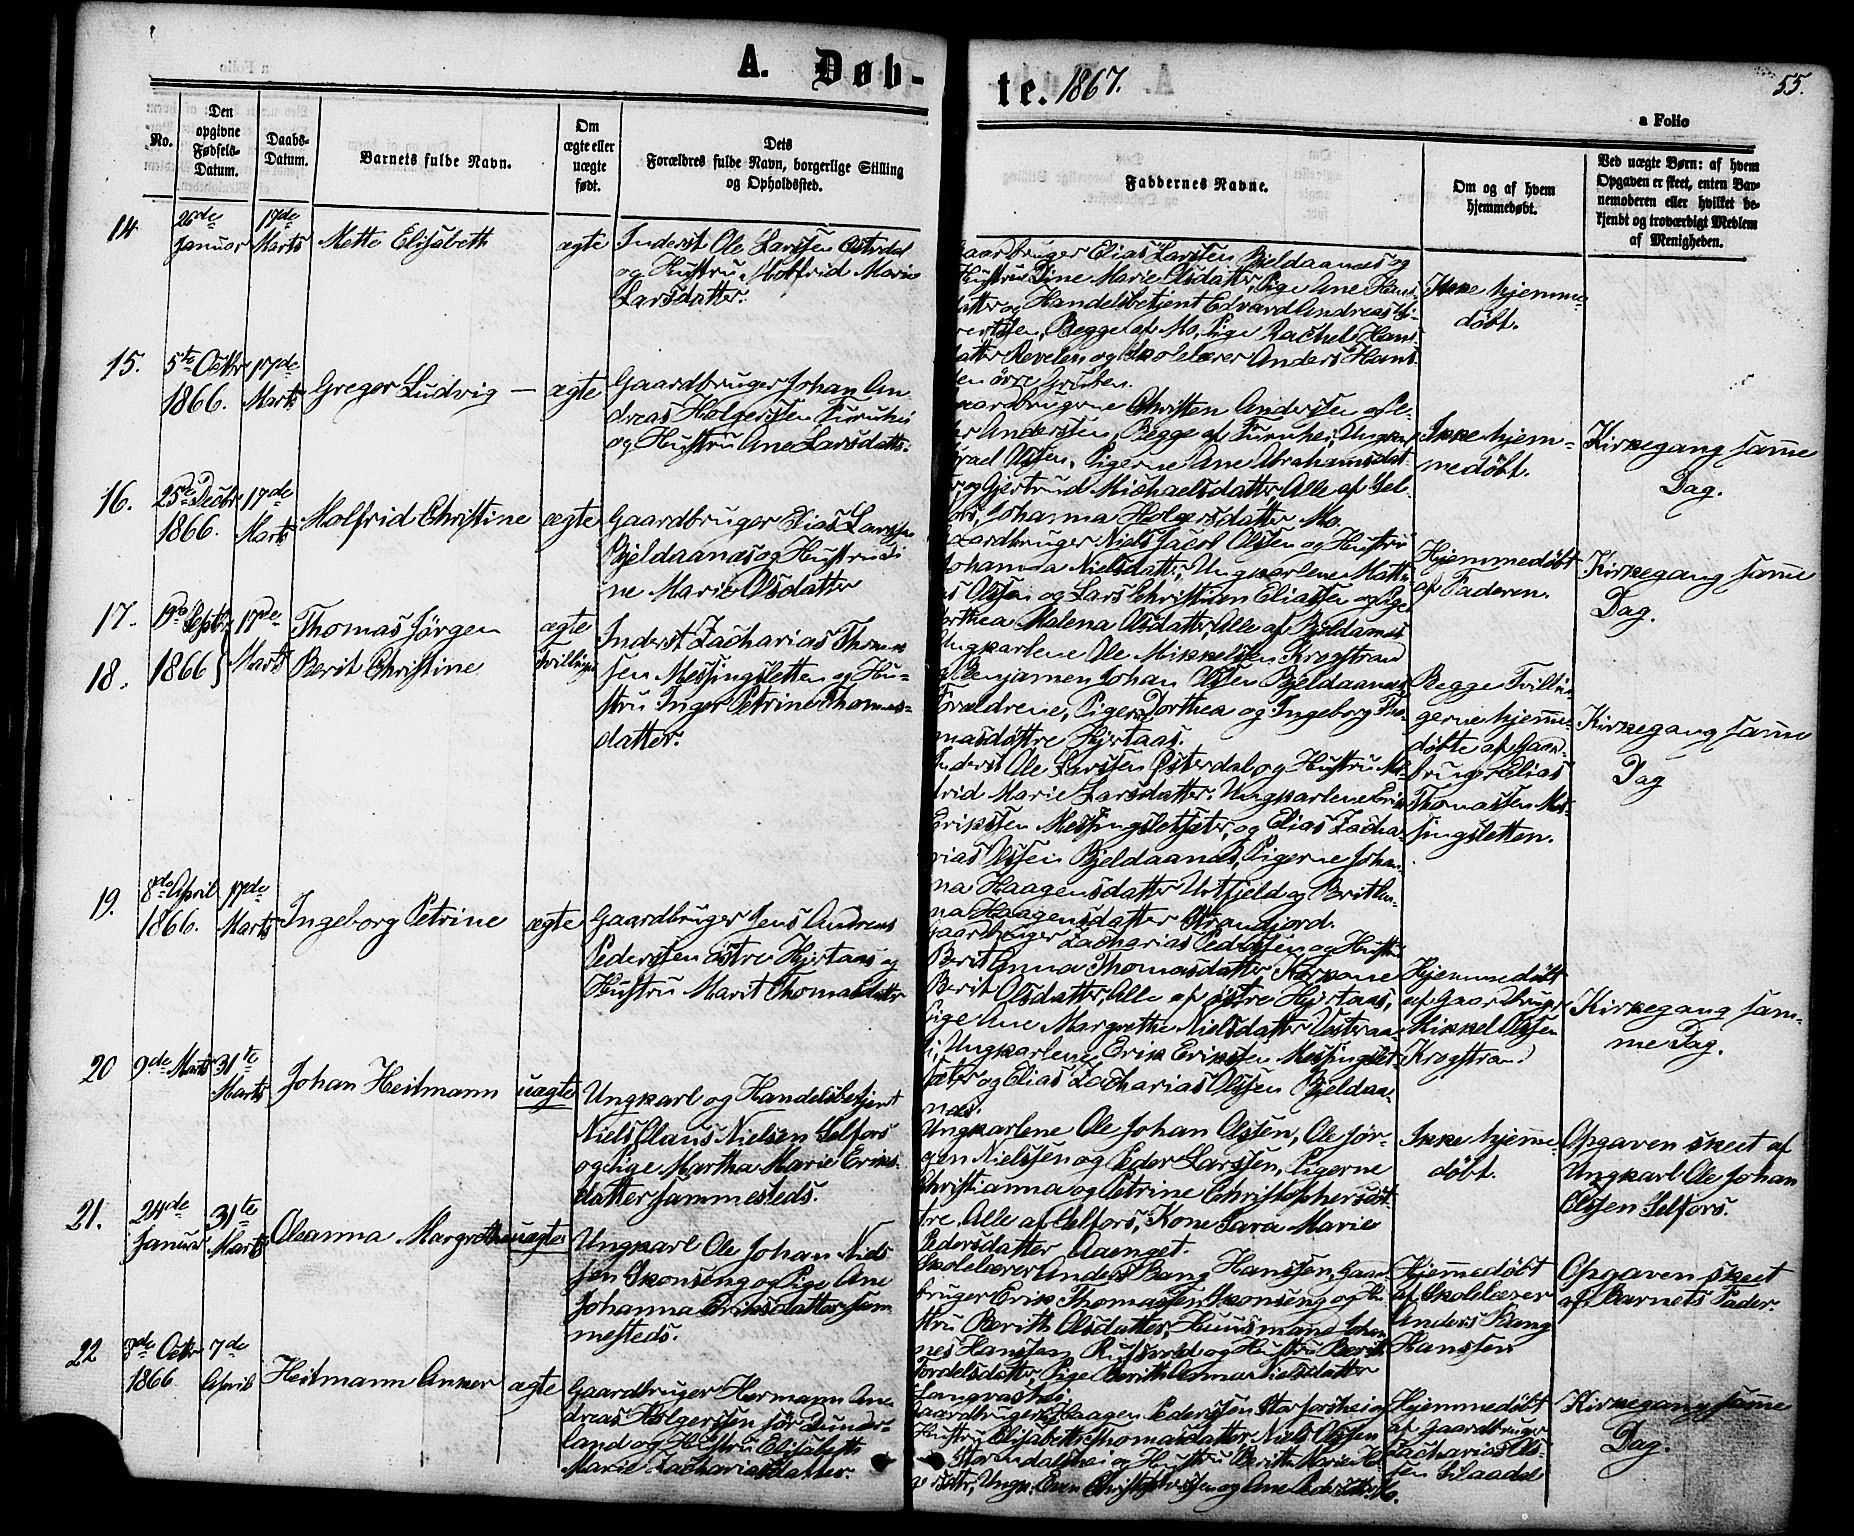 A. Døb-
te. 1867.
55.
a Folio
No.
Den
opgivne
Fødsels-
Datum.
Daabs-
Datum.
Barnets fulde Navn.
Om
ægte eller
uægte
født.
Dets
Forældres fulde Navn, borgerlige Stilling
og Opholdssted.
Faddernes Navne.
Om og af hvem
hjemmedøbt.
Ved uægte Børn: af hvem
Opgaven er skeet, enten Bar-
nemoderen eller hvilket be-
kjendt og troværdigt Medlem
af Menigheden.
14
26de
Januar
17de
Marts
Mette Elisabeth
ægte
Inderst Ole Larssen Østerdal
og Hustru Molfrid Marie
Larsdatter.
Gaardbruger Elias Larssen Bjeldaanæs og
Hustru Dine Marie Olsdatter, Pige Ane Hans
datter og Handelsbetjent Edvard Andreas
Begge af Mo, Pige Rachel Hans
datter Revelen og Skolelærer Anders Hans
sen øvre Gruben.
Ikke hjemme-
døbt.
15.
5te Octbr
1866.
17de
Marts
Gregor Ludvig —
ægte
Gaardbruger Johan An
dreas Holgerssen Furuhei
og Hustru Ane Larsdatter.
Gaardbrugerne Christen Anderssen
Anderssen, Begge af Furuhei, Ungkarl
Olssen, Pigerne Ane Abrahamsdat-
ter og Gjertrud Michaelsdatter, Alle af Sel-
fors, Johanna Holgersdatter Mo.
Ikke hjem-
medøbt.
Kirkegang samme
Dag.
16.
25de Decbr
1866.
17de
Marts
Molfrid Christine
ægte
Gaardbruger Elias Larssen
Bjeldaanæs og Hustru Di
ne Marie Olsdatter
Gaardbruger Niels Jacob Olssen og Hustru
Johanna Nielsdatter, Ungkarlene Matti
as Olssen og Lars Christian Eliassen og Pige
Dorthea Malena Olsdatter, Alle af Bjeldaanæs
Hjemmedøbt
af Faderen.
Kirkegang samme
Dag.
17.
18.
19de Septbr
1866
17de
Marts
Thomas Jørgen
Berit Christine
ægte
Tvillinger
Inderst Zacharias Thomas
sen Messingsletten og Hu-
stru Inger Petrine Thomas-
datter.
Ungkarlene Ole Mikkelssen Krogstrand
og Benjamen Johan Olssen Bjeldaanæs
Forældrene, Pigerne Dorthea og Ingeborg Tho-
masdøttre Hjertaas.
Inderst Ole Larssen Østerdal og Hustru Mol-
frid Marie Larsdatter, Ungkarlene Erik
Erikssen Messingsletsæter, og Elias Zacha-
rias Olssen Bjeldaanæs, Pigerne Johan-
na Haagensdatter Urtfjeld og Berith
na Haagensdatter Strandjord.
Begge Tvillin
gerne hjemme-
døbte af Gaard-
bruger Elias
Thomassen Mes-
singsletten.
Kirkegang samme
Dag
19.
8de April
1866.
17de
Marts
Ingeborg Petrine
ægte
Gaardbruger Jens Andreas
Pederssen østre Hjertaas og
Hustru Marit Thomasdatter
Gaardbruger Zacharias Pederssen og Hustru
Berit Anna Thomasdatter, Kone
Berit Olsdatter, Alle af østre Hjertaas,
Pige Ane Margrethe Nielsdatter
Ungkarlene Erik Erikssen Messingslet-
sæter og Elias Zacharias Olssen Bjeldaa-
næs.
Hjemmedøbt
af Gaardbruger
Mikkel Olssen
Krogstrand
Kirkegang sam-
me Dag.
20
9de Marts
31te
Marts
Johan Heitmann
uægte
Ungkarl og Handelsbetjent
Niels Claus Nielsen Selfors
og Pige Martha Marie Eriks-
datter sammesteds.
Ungkarlene Ole Johan Olssen, Ole Jør-
gen Nielssen og Peder Larssen, Pigerne
Christianna og Petrine Christophersdøt-
tre, Alle af Selfors, Kone Sara Marie
Pedersdatter Aaenget.
Ikke hjemme
døbt.
Opgaven skeet af
Ungkarl Ole Johan
Olssen Selfors.
21.
24de
Januar
31te
Marts
Oleanna Margrethe
uægte
Ungkarl Ole Johan Niels
sen Skonseng og Pige Ane
Johanna Eriksdatter sam
mesteds.
Skolelærer Anders Bang Hanssen, Gaard
bruger Erik Thomassen Skonseng og Hu
stru Berith Olsdatter, Huusmand Johan
nes Hanssen og Hustru Berit
Tordelsdatter, Pige Berith Anna Nielsdatter
Langvashei
Hjemmedøbt
af Skolelærer
Anders Bang
Hanssen
Opgaven skeet
af Barnets Fader.
22
8de Octbr
1866
7de
April
Heitmann Anker
ægte
Gaardbruger Hermann An-
dreas Holgerssen sør Dunder-
land og Hustru Elisabeth
Marie Zachariasdatter.
Gaardbruger Haagen Pederssen Storforshei og
Hustru Elisabeth Thomasdatter, Niels Olssen
Stordalshei og Hustru Berith Marie
Ungk. Even Christophersen og Ane Pedersdatter Mo.
Hjemmedøbt
af Gaardbruger
Zacharias Ols-
sen
Kirkegang samme
Dag.